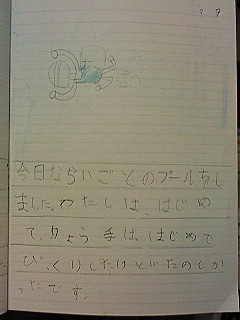 今日ならいごとのプールをし
ました。わたしは、はじめ
て、りょう手は、はじめで
びっくりしたけどたのしか
ったです。